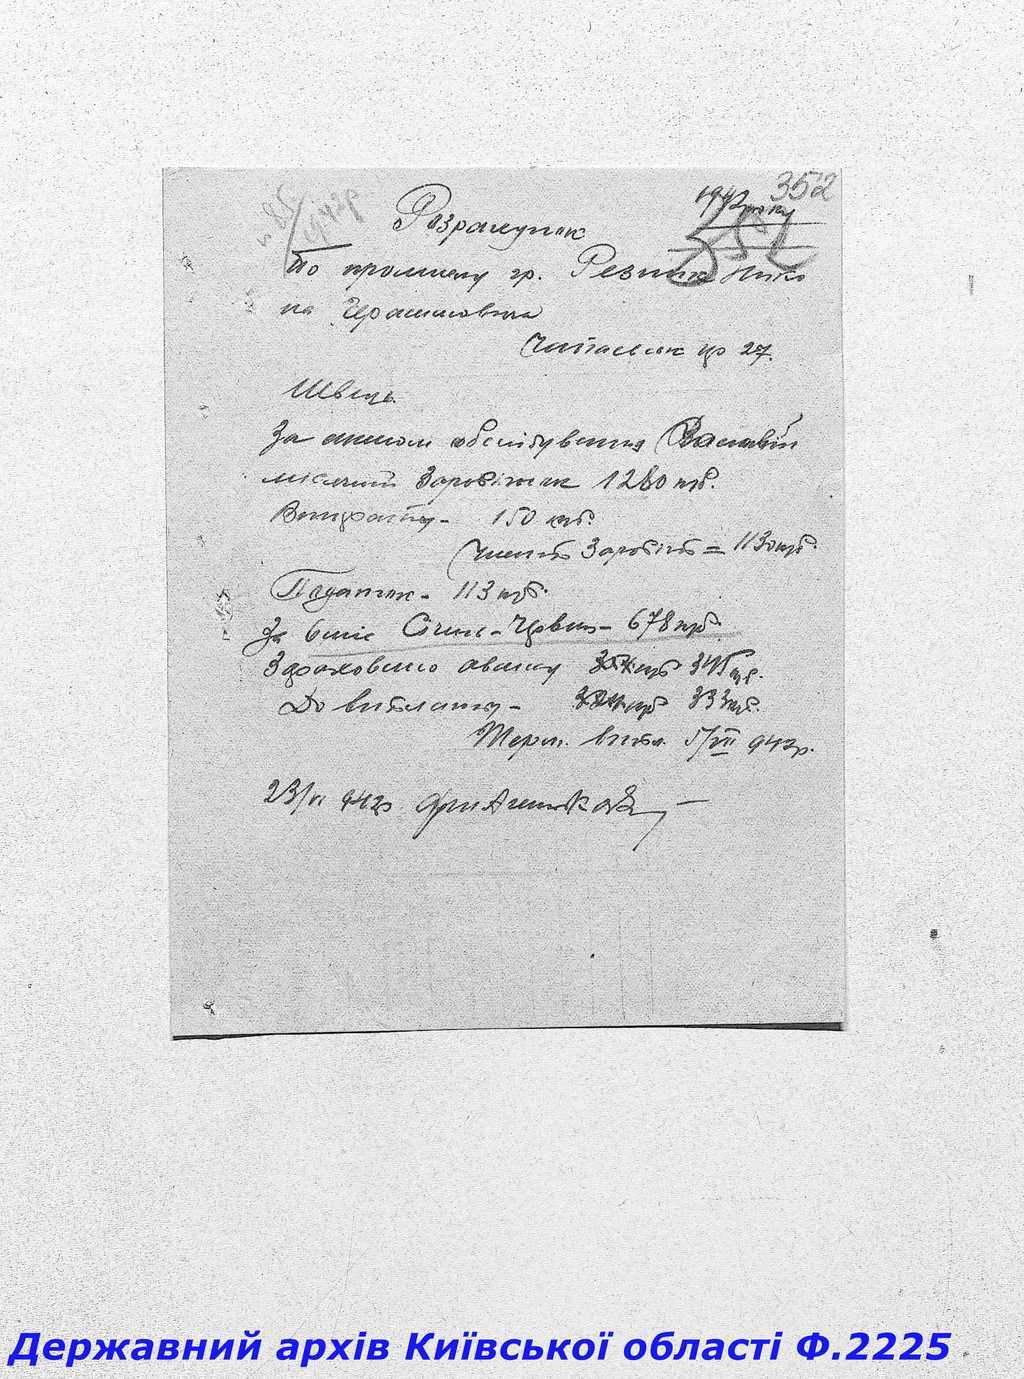 352
1942 року
Розрахунок
По промыслу гр. Резник Нико
ла Герасимовича
27.
Швець.
За актом обслідування
місячний Заробіток 1280 крб.
Витрати - 150 крб.
Чистий Заробіт = 1130 крб.
Податок - 113 крб.
За 6 міс Січень - Червень - 678 крб.
Зараховано авансу 345 крб.
До виплати - 333 крб.
Терм. випл. 5/VII 942 р.
23/VI 942 р
Державний архів Київської області Ф.2225